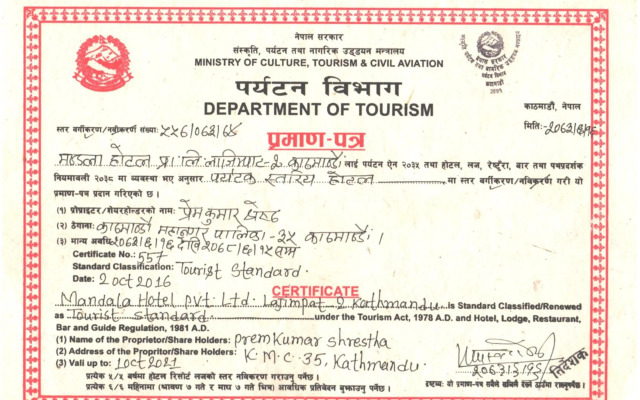 नेपाल सरकार
संस्कृति, पर्यटन तथा नागरिक उड्डयन मन्त्रालय
MINISTRY OF CULTURE, TOURISM & CIVIL AVIATION
पर्यटन विभाग
DEPARTMENT OF TOURISM
काठमाडौं, नेपाल
स्तर वर्गीकरण/नविकरण संख्या: ५५६/०६३/६४
मिति:-२०६३/६/१६
प्रमाण-पत्र
मण्डला होटल प्रा. लि. लाजिम्पाट-२ काठमाडौं लाई पर्यटन ऐन २०३५ तथा होटल, लज, रेष्टुराँ, बार तथा पथप्रदर्शक
नियमावली २०३८ मा व्यवस्था भए अनुसार पर्यटक स्तरिय होटल मा स्तर वर्गीकरण/नविकरण गरी यो
प्रमाण-पत्र प्रदान गरिएको छ ।
(१) प्रोप्राइटर/शेयरहोल्डरको नाम: प्रेम कुमार श्रेष्ठ
(२) ठेगाना: काठमाडौं महानगर पालिका-३५ काठमाडौं ।
(३) मान्य अवधि: २०६३/६/१६ देखि २०६८/६/१५ सम्म
Certificate No.: 557
Standard Classification: Tourist Standard.
Date: 2 oct 2016
CERTIFICATE
Mandala Hotel pvt. Ltd. Lajimpat-2 Kathmandu is Standard Classified/Renewed
as Tourist standard under the Tourism Act, 1978 A.D. and Hotel, Lodge, Restaurant,
Bar and Guide Regulation, 1981 A.D.
(1) Name of the Proprietor/Share Holders: prem Kumar shrestha
(2) Address of the Propritor/Share Holders: K.M.C-35, Kathmandu.
(3) Vali up to: 1 oct 2021
निर्देशक
प्रत्येक ५/५ वर्षमा होटल रिसोर्ट लजको स्तर नविकरण गराउनु पर्नेछ ।
प्रत्येक ६/६ महिनामा (श्रावण ७ गते र माघ ७ गते भित्र) आवधिक प्रतिवेदन बुझाउनु पर्नेछ ।